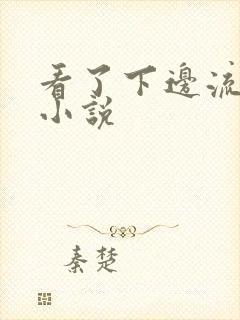 看了下邊流
小說
秦楚